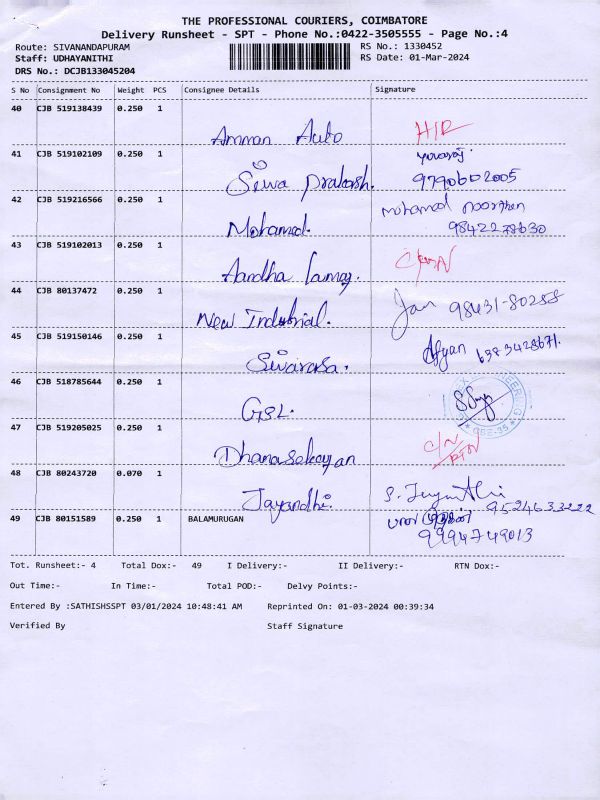 THE PROFESSIONAL COURIERS, COIMBATORE
Delivery Runsheet - SPT - Phone No.:0422-3505555 - Page No.:4
Route: SIVANANDAPURAM RS No.: 1330452
Staff: UDHAYANITHI RS Date: 01-Mar-2024
DRS No.: DCJB133045204
S No Consignment No Weight PCS Consignee Details Signature
40 CJB 519138439 0.250 1
Amman Auto
41 CJB 519102109 0.250 1
Siva Prakash. 9790602005
42 CJB 519216566 0.250 1 mohamed noordhen
Mohamed. 9842278630
43 CJB 519102013 0.250 1
Aandha
44 CJB 80137472 0.250 1 Jan 98431-80288
New Industrial.
45 CJB 519150146 0.250 1 Afyan 6383428671.
Sivarasa.
46 CJB 518785644 0.250 1
GSL.
47 CJB 519205025 0.250 1 C/N
Dhanasekayan RTN
48 CJB 80243720 0.070 1
Jayandhi. 9524633222
49 CJB 80151589 0.250 1 BALAMURUGAN
9994749013
Tot. Runsheet:- 4 Total Dox:- 49 I Delivery:- II Delivery:- RTN Dox:-
Out Time:- In Time:- Total POD:- Delvy Points:-
Entered By :SATHISHSSPT 03/01/2024 10:48:41 AM Reprinted On: 01-03-2024 00:39:34
Verified By Staff Signature